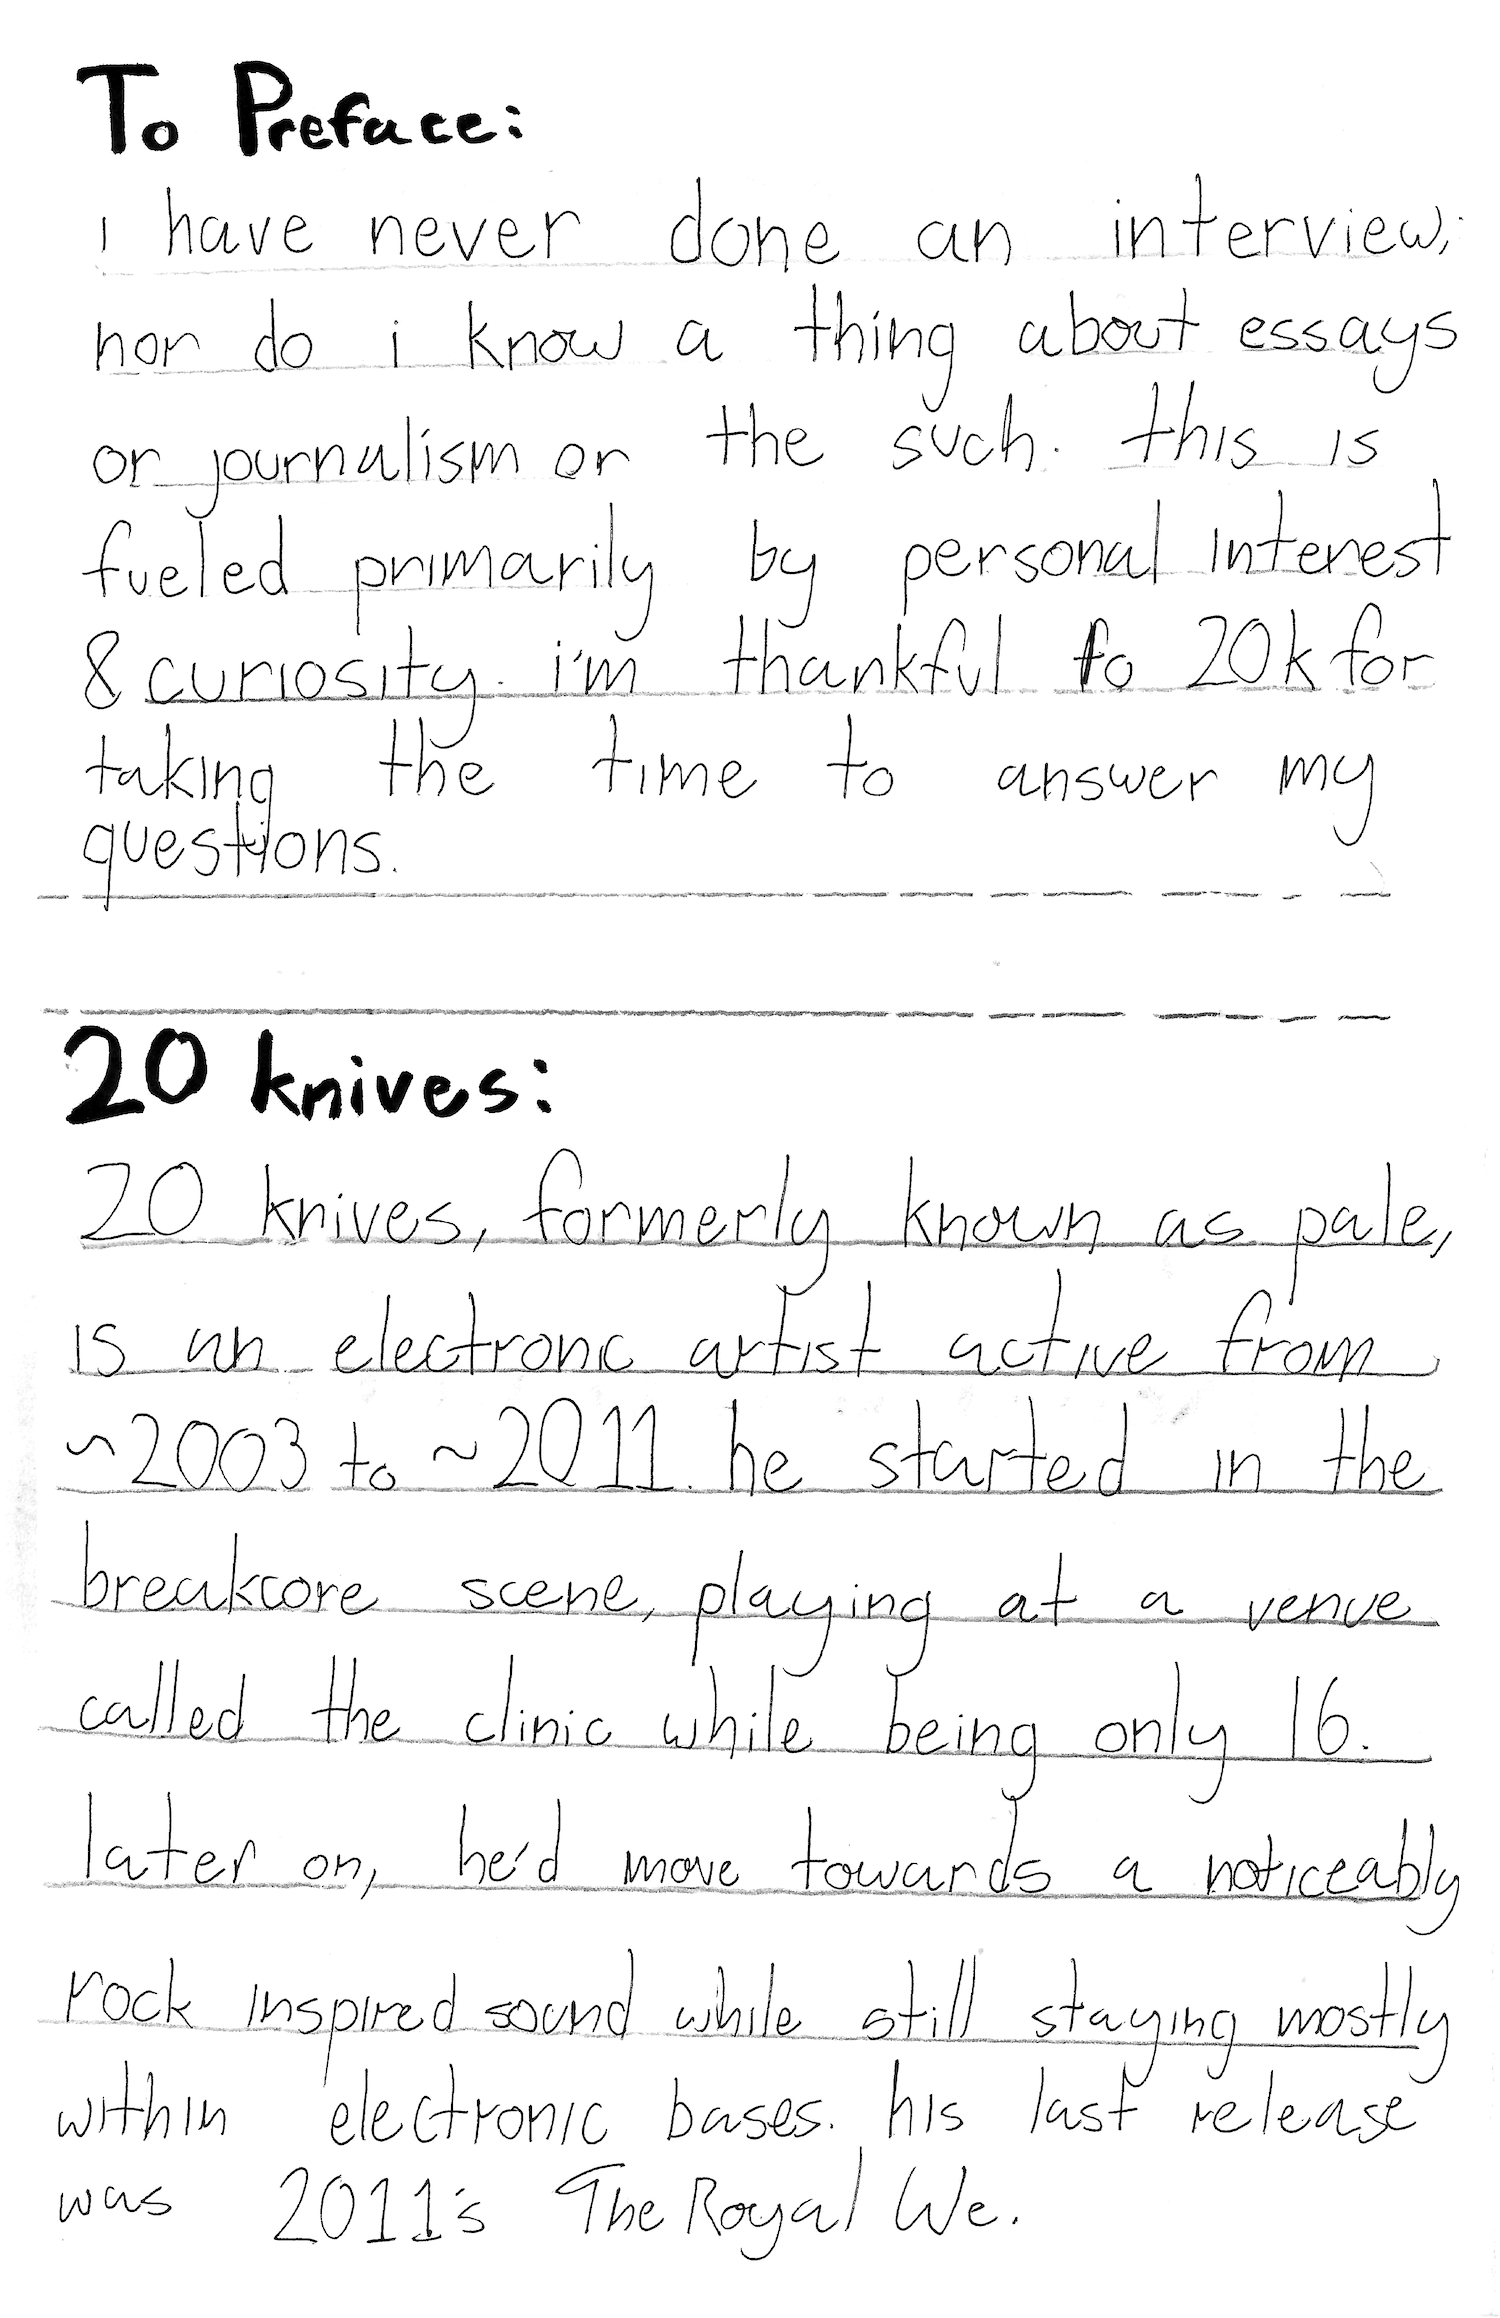 To Preface:
i have never done an interview,
nor do i know a thing about essays
or journalism or the such. this is
fueled primarily by personal interest
& curiosity. i'm thankful to 20k for
taking the time to answer my
questions.
20 knives:
20 knives, formerly known as pale,
is an electronic artist active from
~2003 to ~2011. he started in the
breakcore scene, playing at a venue
called the clinic while being only 16.
later on, he'd move towards a noticeably
rock inspired sound while still staying mostly
within electronic bases. his last release
was 2011's The Royal We.